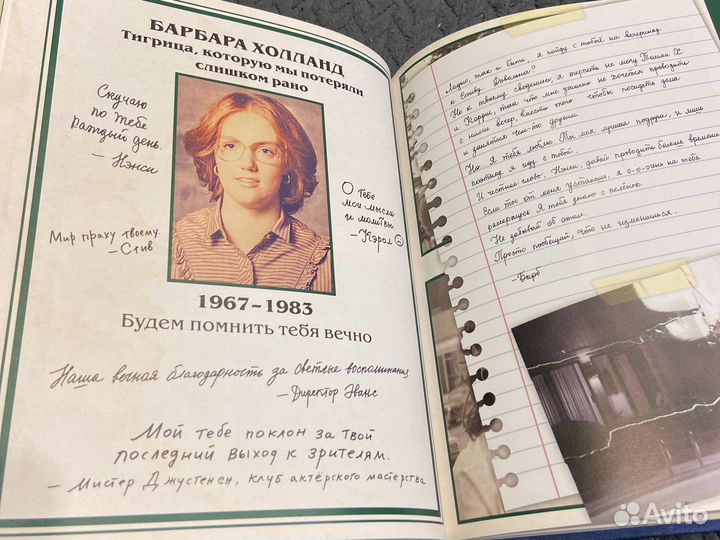 БАРБАРА ХОЛЛАНД
Тигрица, которую мы потеряли
слишком рано
Скучаю
по тебе
каждый день.
– Нэнси
О тебе
мои мысли
и молитвы.
– Кэрол
Мир праху твоему.
– Стив
1967–1983
Будем помнить тебя вечно
Наша вечная благодарность за светлые воспоминания.
– Директор Эванс
Мой тебе поклон за твой
последний выход к зрителям.
– Мистер Джустенсен, клуб актёрского мастерства
Ладно, так и быть, я пойду с тобой на вечеринку
к Стиву. Довольна?
Но к твоему сведению, я терпеть не могу Томми Х.
и Кэрол, так что мне ужасно не хочется проводить
с ними вечер, вместо того чтобы посидеть дома
и заняться чем-то другим.
Но... Я тебя люблю. Ты моя лучшая подруга, и лишь
поэтому я иду с тобой.
И честное слово, Нэнси, давай проводить больше времени
Если ты от меня устанешь, я о-о-очень на тебя
рассержусь. Я тебя знаю с пелёнок.
Не забывай об этом.
Просто пообещай, что не изменишься.
–Барб
Avito